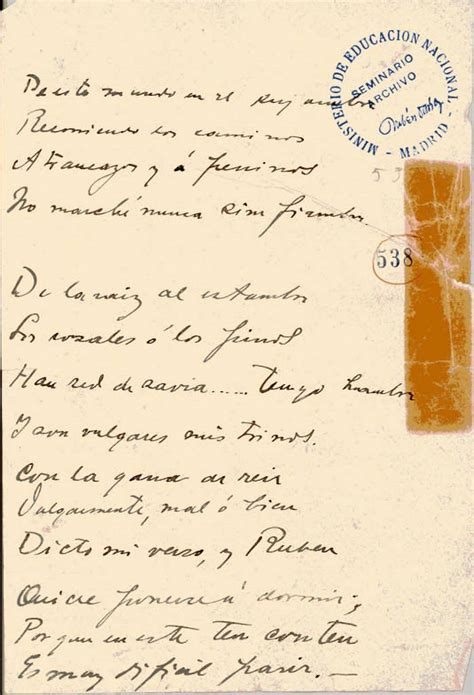 MINISTERIO DE EDUCACION NACIONAL - MADRID -
SEMINARIO
ARCHIVO
Rubén Darío
53
538
De este mundo en el enjambre
Recorriendo los caminos
A trancazos y á pepinos
No marché nunca sin fiambre.
De la raiz al estambre
Los rosales ó los pinos
Han sed de savia...... Tengo hambre
Y son vulgares mis trinos.
Con la gana de reir
Vulgarmente, mal ó bien
Dicto mi verso, y Ruben
Quiere ponerse á dormir;
Porque en este ten con ten
Es muy dificil parir.—